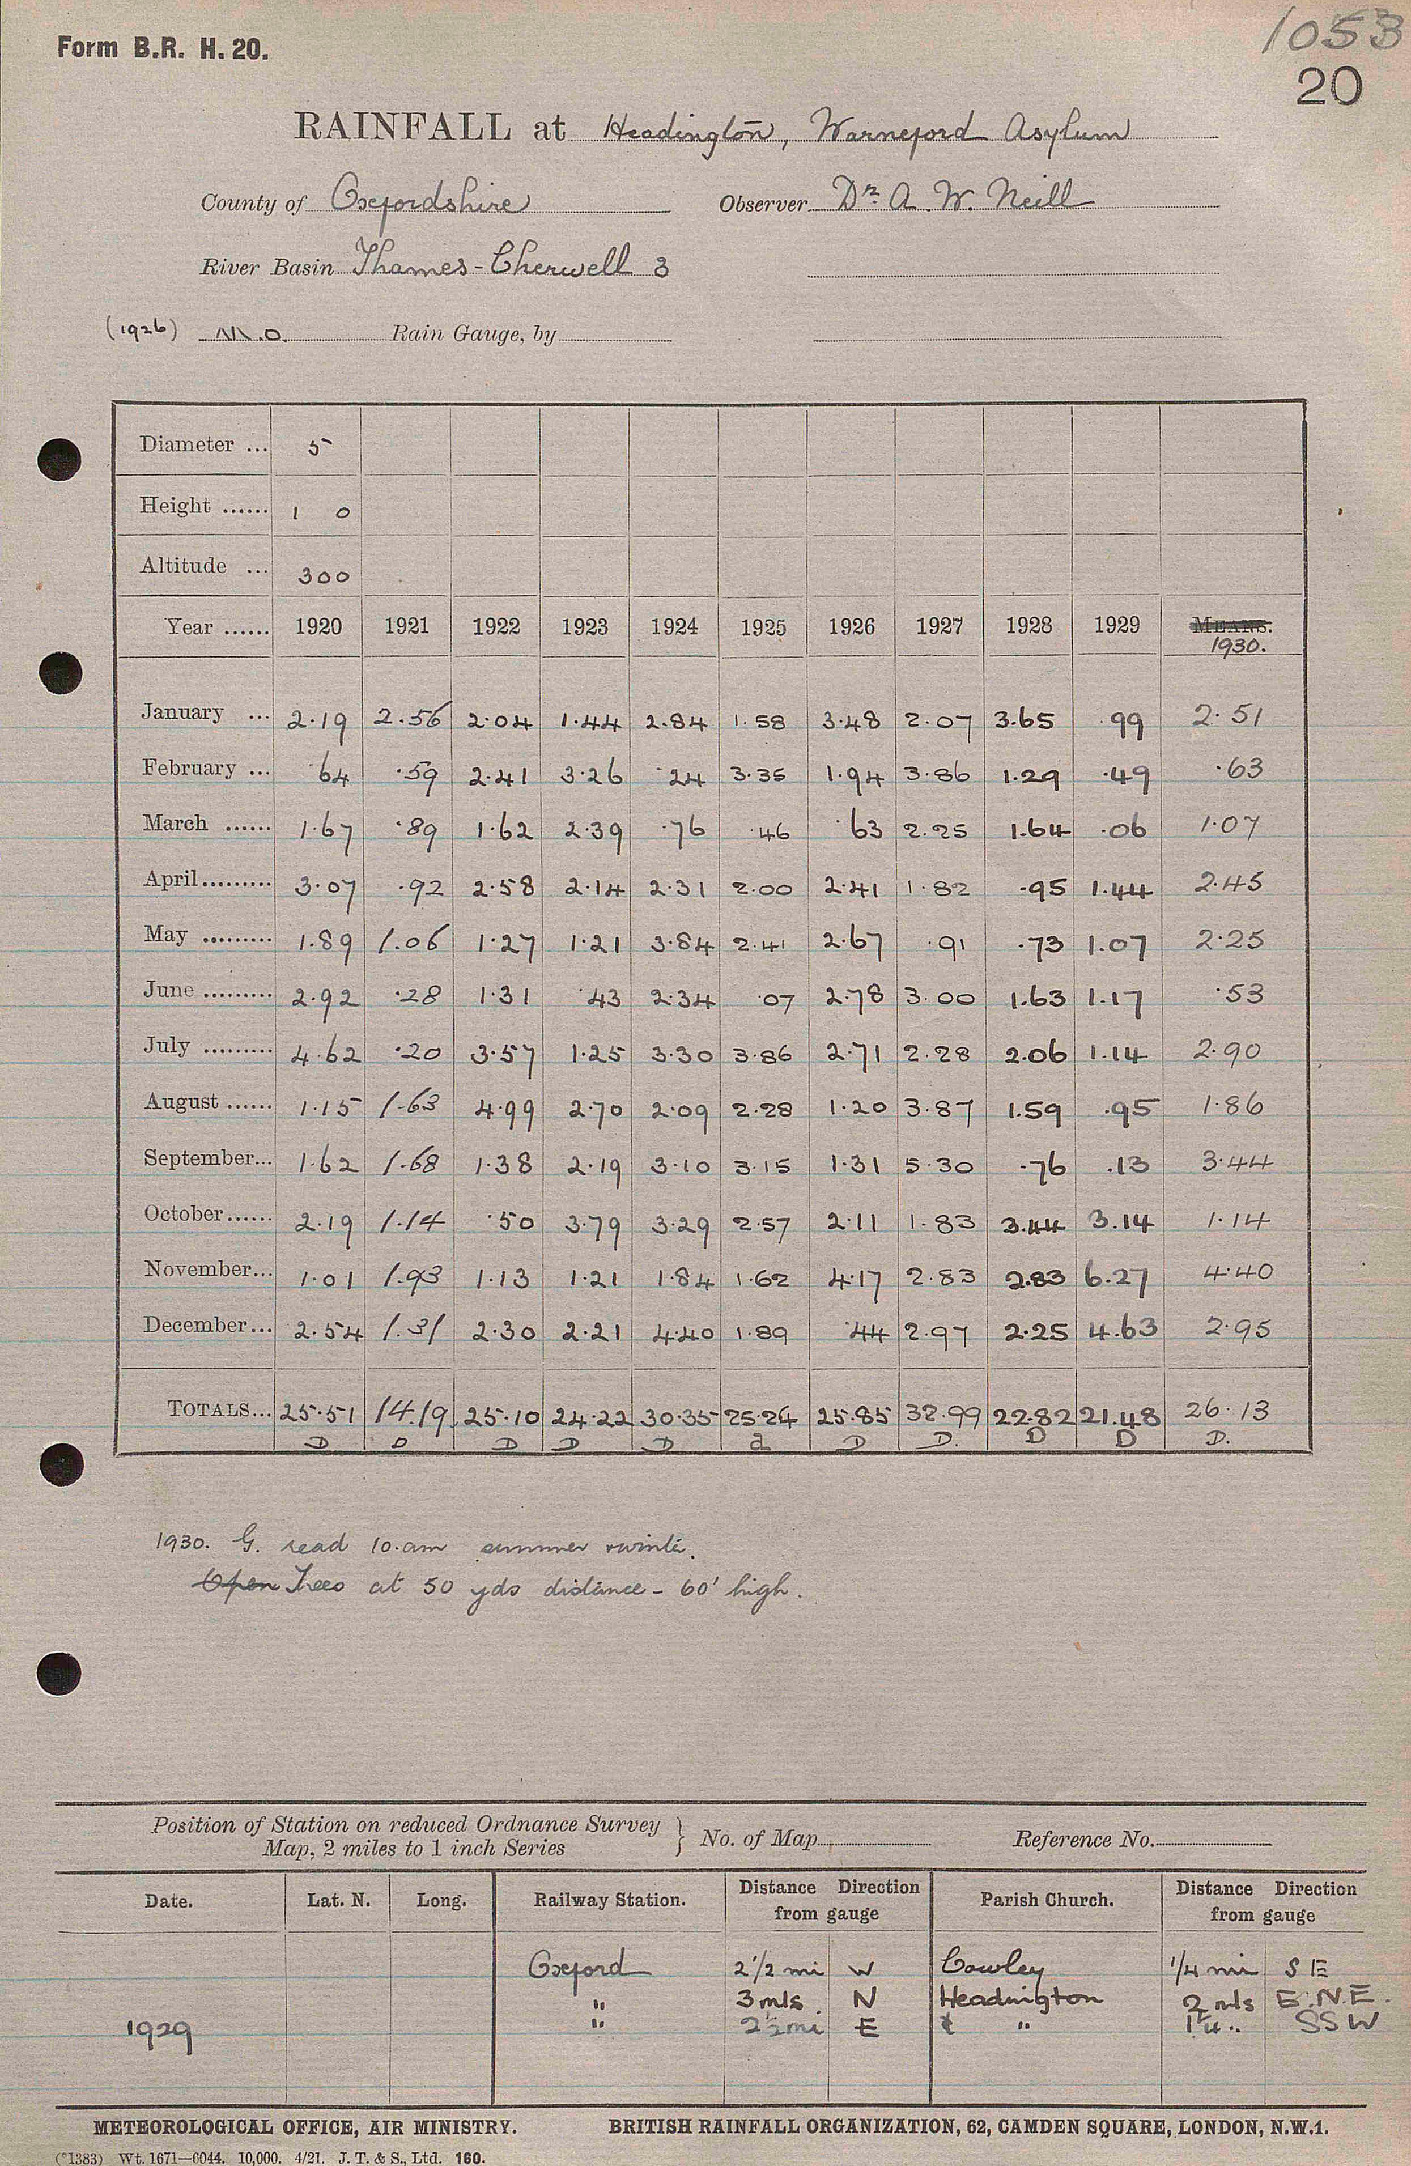 1053
Form B.R. H. 20.
20
RAINFALL at Headington, Warneford Asylum
County of Oxfordshire Observer Dr. A. W. Neill
River Basin Thames - Cherwell 3
(1926) M.O. Rain Gauge, by
Diameter ... 5
Height ...... 1 0
Altitude ... 300
Year ...... 1920 1921 1922 1923 1924 1925 1926 1927 1928 1929 MEANS.
1930.
January ... 2.19 2.56 2.04 1.44 2.84 1.58 3.48 2.07 3.65 .99 2.51
February ... .64 .59 2.41 3.26 .24 3.35 1.94 3.86 1.29 .49 .63
March ...... 1.67 .89 1.62 2.39 .76 .46 .63 2.25 1.64 .06 1.07
April......... 3.07 .92 2.58 2.14 2.31 2.00 2.41 1.82 .95 1.44 2.45
May ......... 1.89 1.06 1.27 1.21 3.84 2.41 2.67 .91 .73 1.07 2.25
June ......... 2.92 .28 1.31 .43 2.34 .07 2.78 3.00 1.63 1.17 .53
July ......... 4.62 .20 3.57 1.25 3.30 3.86 2.71 2.28 2.06 1.14 2.90
August ...... 1.15 1.63 4.99 2.70 2.09 2.28 1.20 3.87 1.59 .95 1.86
September... 1.62 1.68 1.38 2.19 3.10 3.15 1.31 5.30 .76 .13 3.44
October...... 2.19 1.14 .50 3.79 3.29 2.57 2.11 1.83 3.44 3.14 1.14
November... 1.01 1.93 1.13 1.21 1.84 1.62 4.17 2.83 2.83 6.27 4.40
December... 2.54 1.31 2.30 2.21 4.40 1.89 .44 2.97 2.25 4.63 2.95
TOTALS... 25.51 14.19 25.10 24.22 30.35 25.24 25.85 32.99 22.82 21.48 26.13
D D D D D a D D. D D D.
1930. G. read 10.am summer & winter.
Open Trees at 50 yds distance - 60' high.
Position of Station on reduced Ordnance Survey
Map, 2 miles to 1 inch Series } No. of Map Reference No.
Date. Lat. N. Long. Railway Station. Distance Direction from gauge Parish Church. Distance Direction from gauge
Oxford 2 1/2 mi W Cowley 1/4 mi S E
" 3 mls. N Headington 2 mls E.N.E.
1929 " 2 1/2 mi E " 1 1/4 .. SSW
METEOROLOGICAL OFFICE, AIR MINISTRY. BRITISH RAINFALL ORGANIZATION, 62, CAMDEN SQUARE, LONDON, N.W.1.
(*1383) Wt. 1671—0044. 10,000. 4/21. J. T. & S., Ltd. 160.